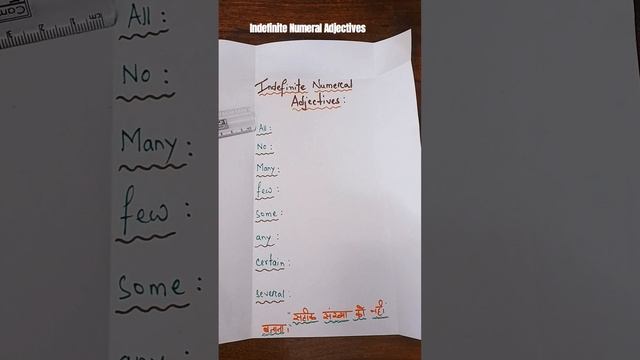 Indefinite Numeral Adjectives
Indefinite Numeral
Adjectives:
All:
No:
Many:
few:
some:
any:
certain:
several:
"सटीक संख्या को नहीं
बताता।"
All:
No:
Many:
few:
some:
any: